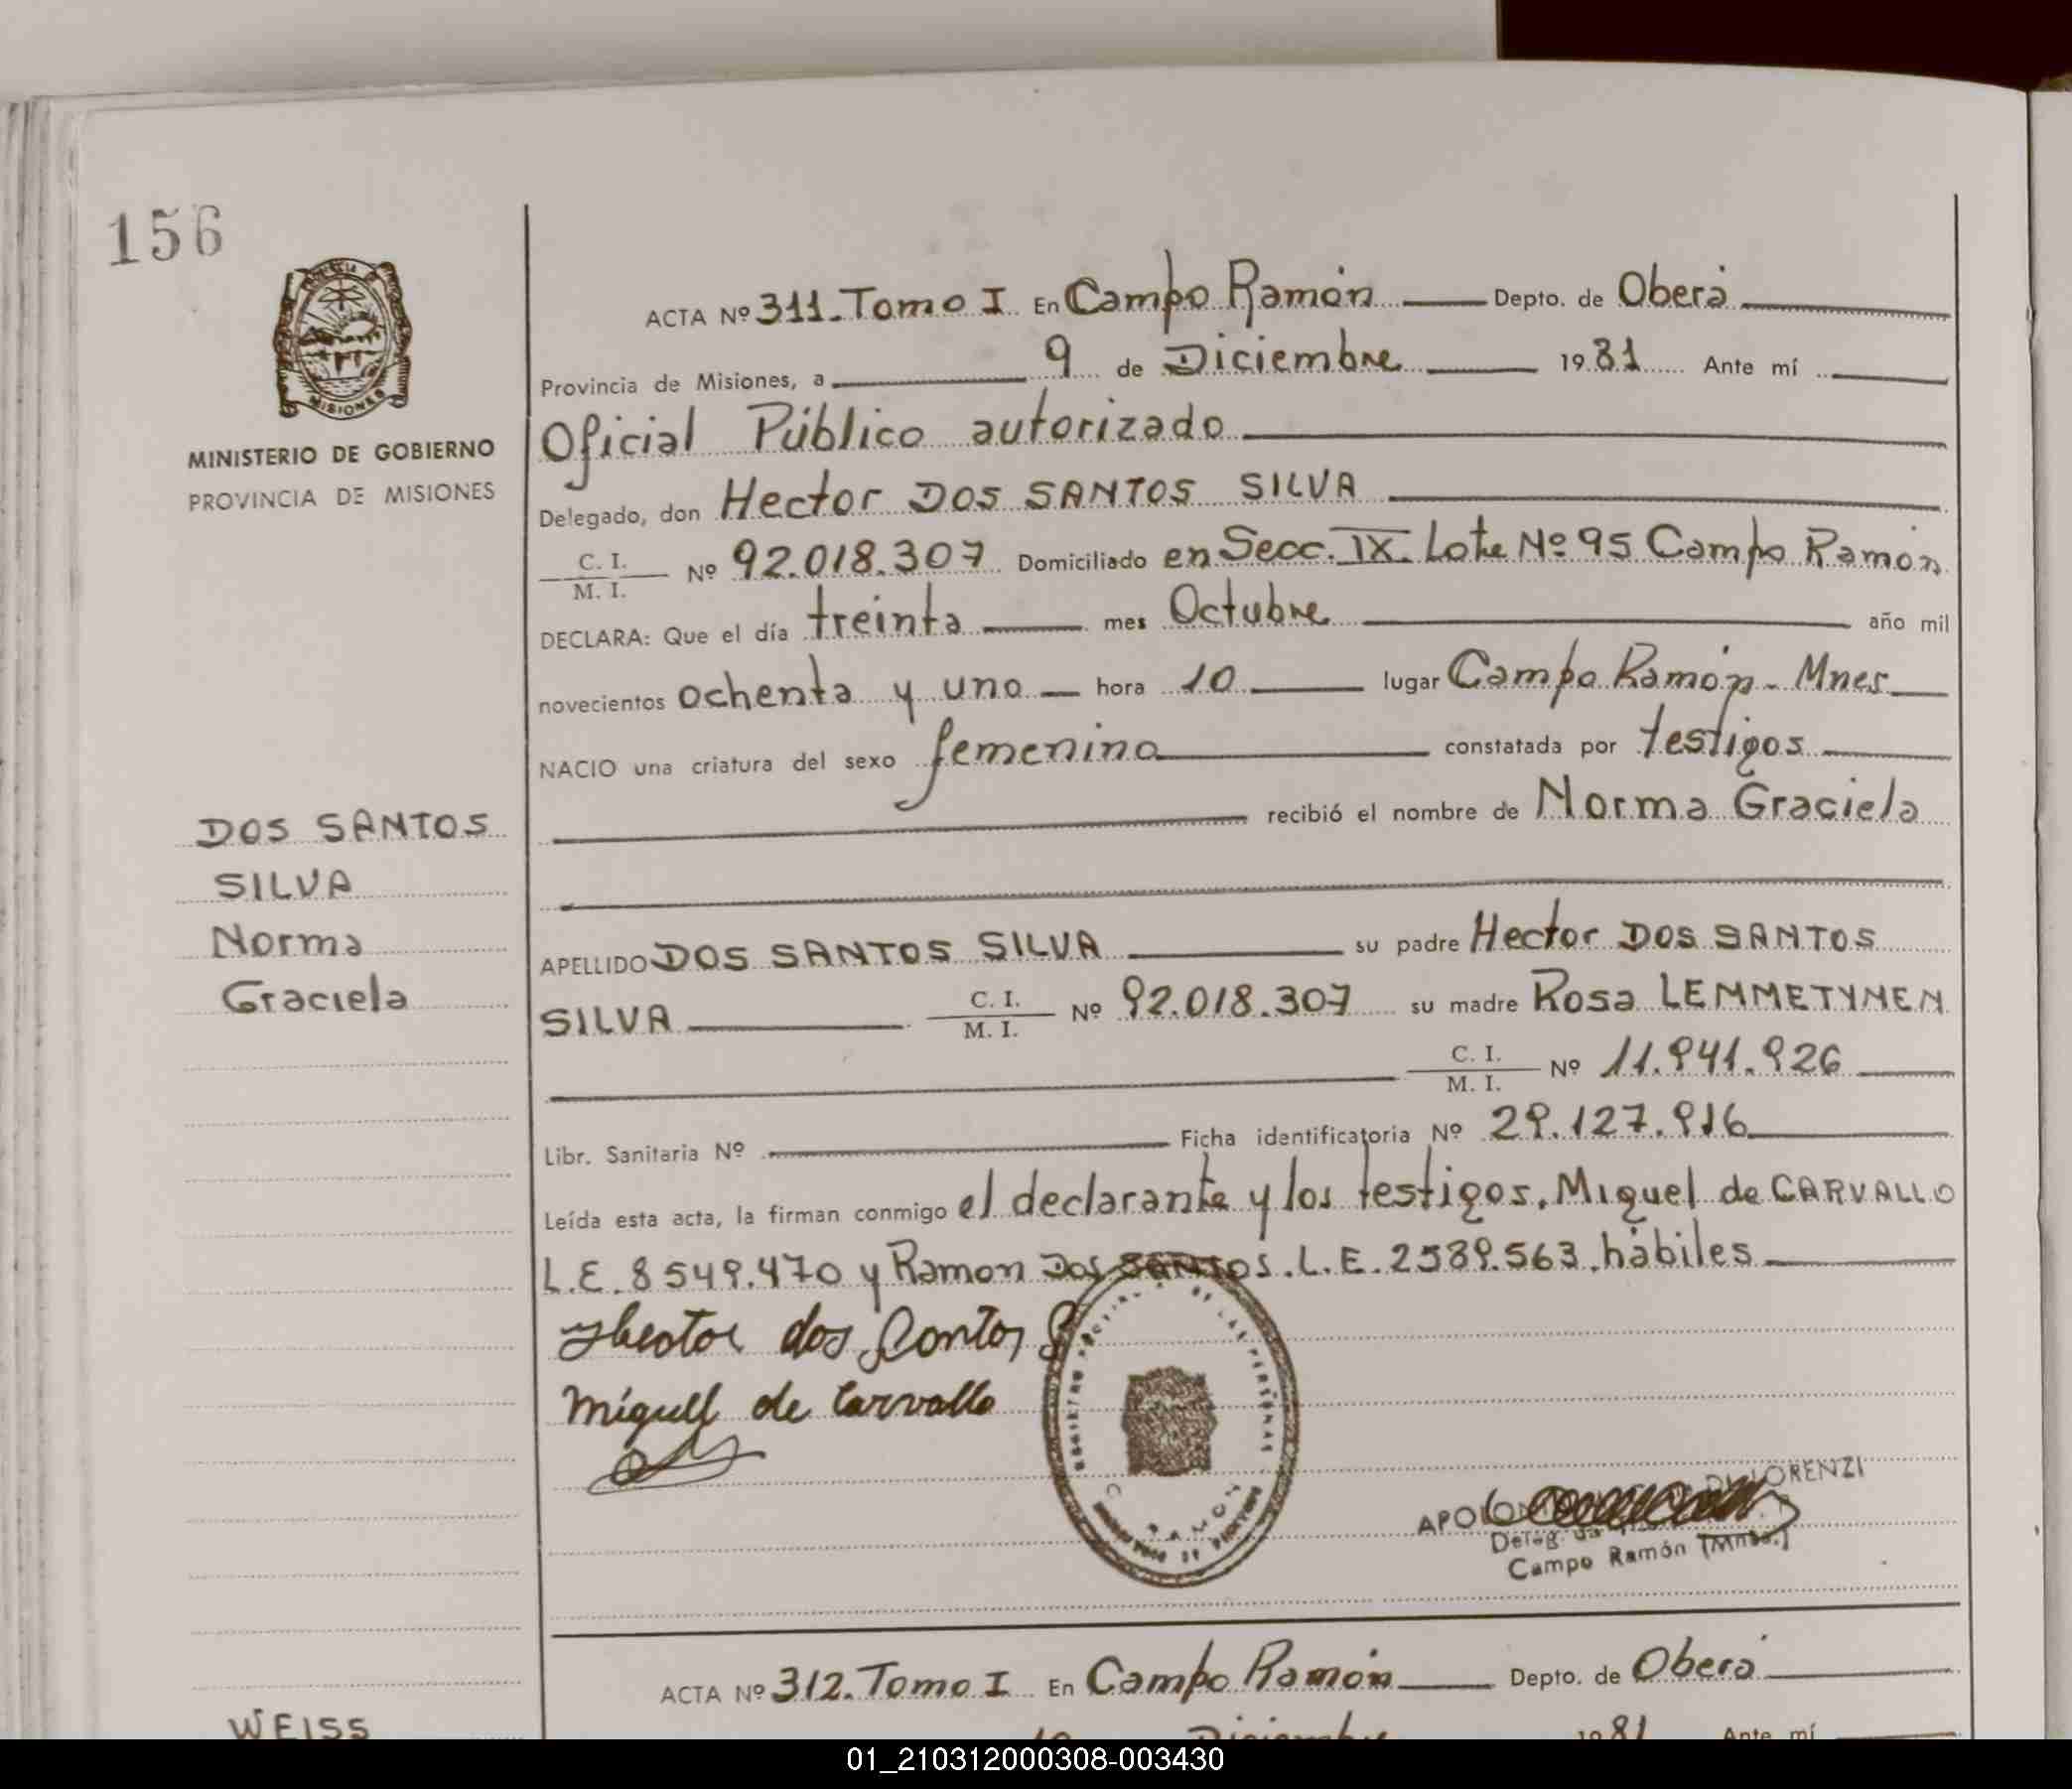 156
MINISTERIO DE GOBIERNO
PROVINCIA DE MISIONES
DOS SANTOS
SILVA
Norma
Graciela
ACTA Nº 311. Tomo I En Campo Ramón Depto. de Oberá
Provincia de Misiones, a 9 de Diciembre 1981 Ante mí
Oficial Público autorizado
Delegado, don Hector DOS SANTOS SILVA
C. I. / M. I. Nº 92.018.307 Domiciliado en Secc. IX. Lote Nº 95 Campo Ramón
DECLARA: Que el día treinta mes Octubre año mil
novecientos ochenta y uno hora 10 lugar Campo Ramón - Mnes
NACIO una criatura del sexo femenino constatada por testigos
recibió el nombre de Norma Graciela
APELLIDO DOS SANTOS SILVA su padre Hector DOS SANTOS
SILVA C. I. / M. I. Nº 92.018.307 su madre Rosa LEMMETYNEN
C. I. / M. I. Nº 11.941.926
Libr. Sanitaria Nº Ficha identificatoria Nº 29.127.916
Leída esta acta, la firman conmigo el declarante y los testigos, Miguel de CARVALLO
L.E. 8549.470 y Ramon Dos SANTOS. L.E. 2589.563. hábiles
Hector dos Santos S
Miguell de Carvallo
REGISTRO DE LAS PERSONAS
C. RAMON
LORENZI
Campo Ramón (Mnes.)
ACTA Nº 312. Tomo I En Campo Ramón Depto. de Oberá
WEISS
Diciembre 1981 Ante mí
01_210312000308-003430